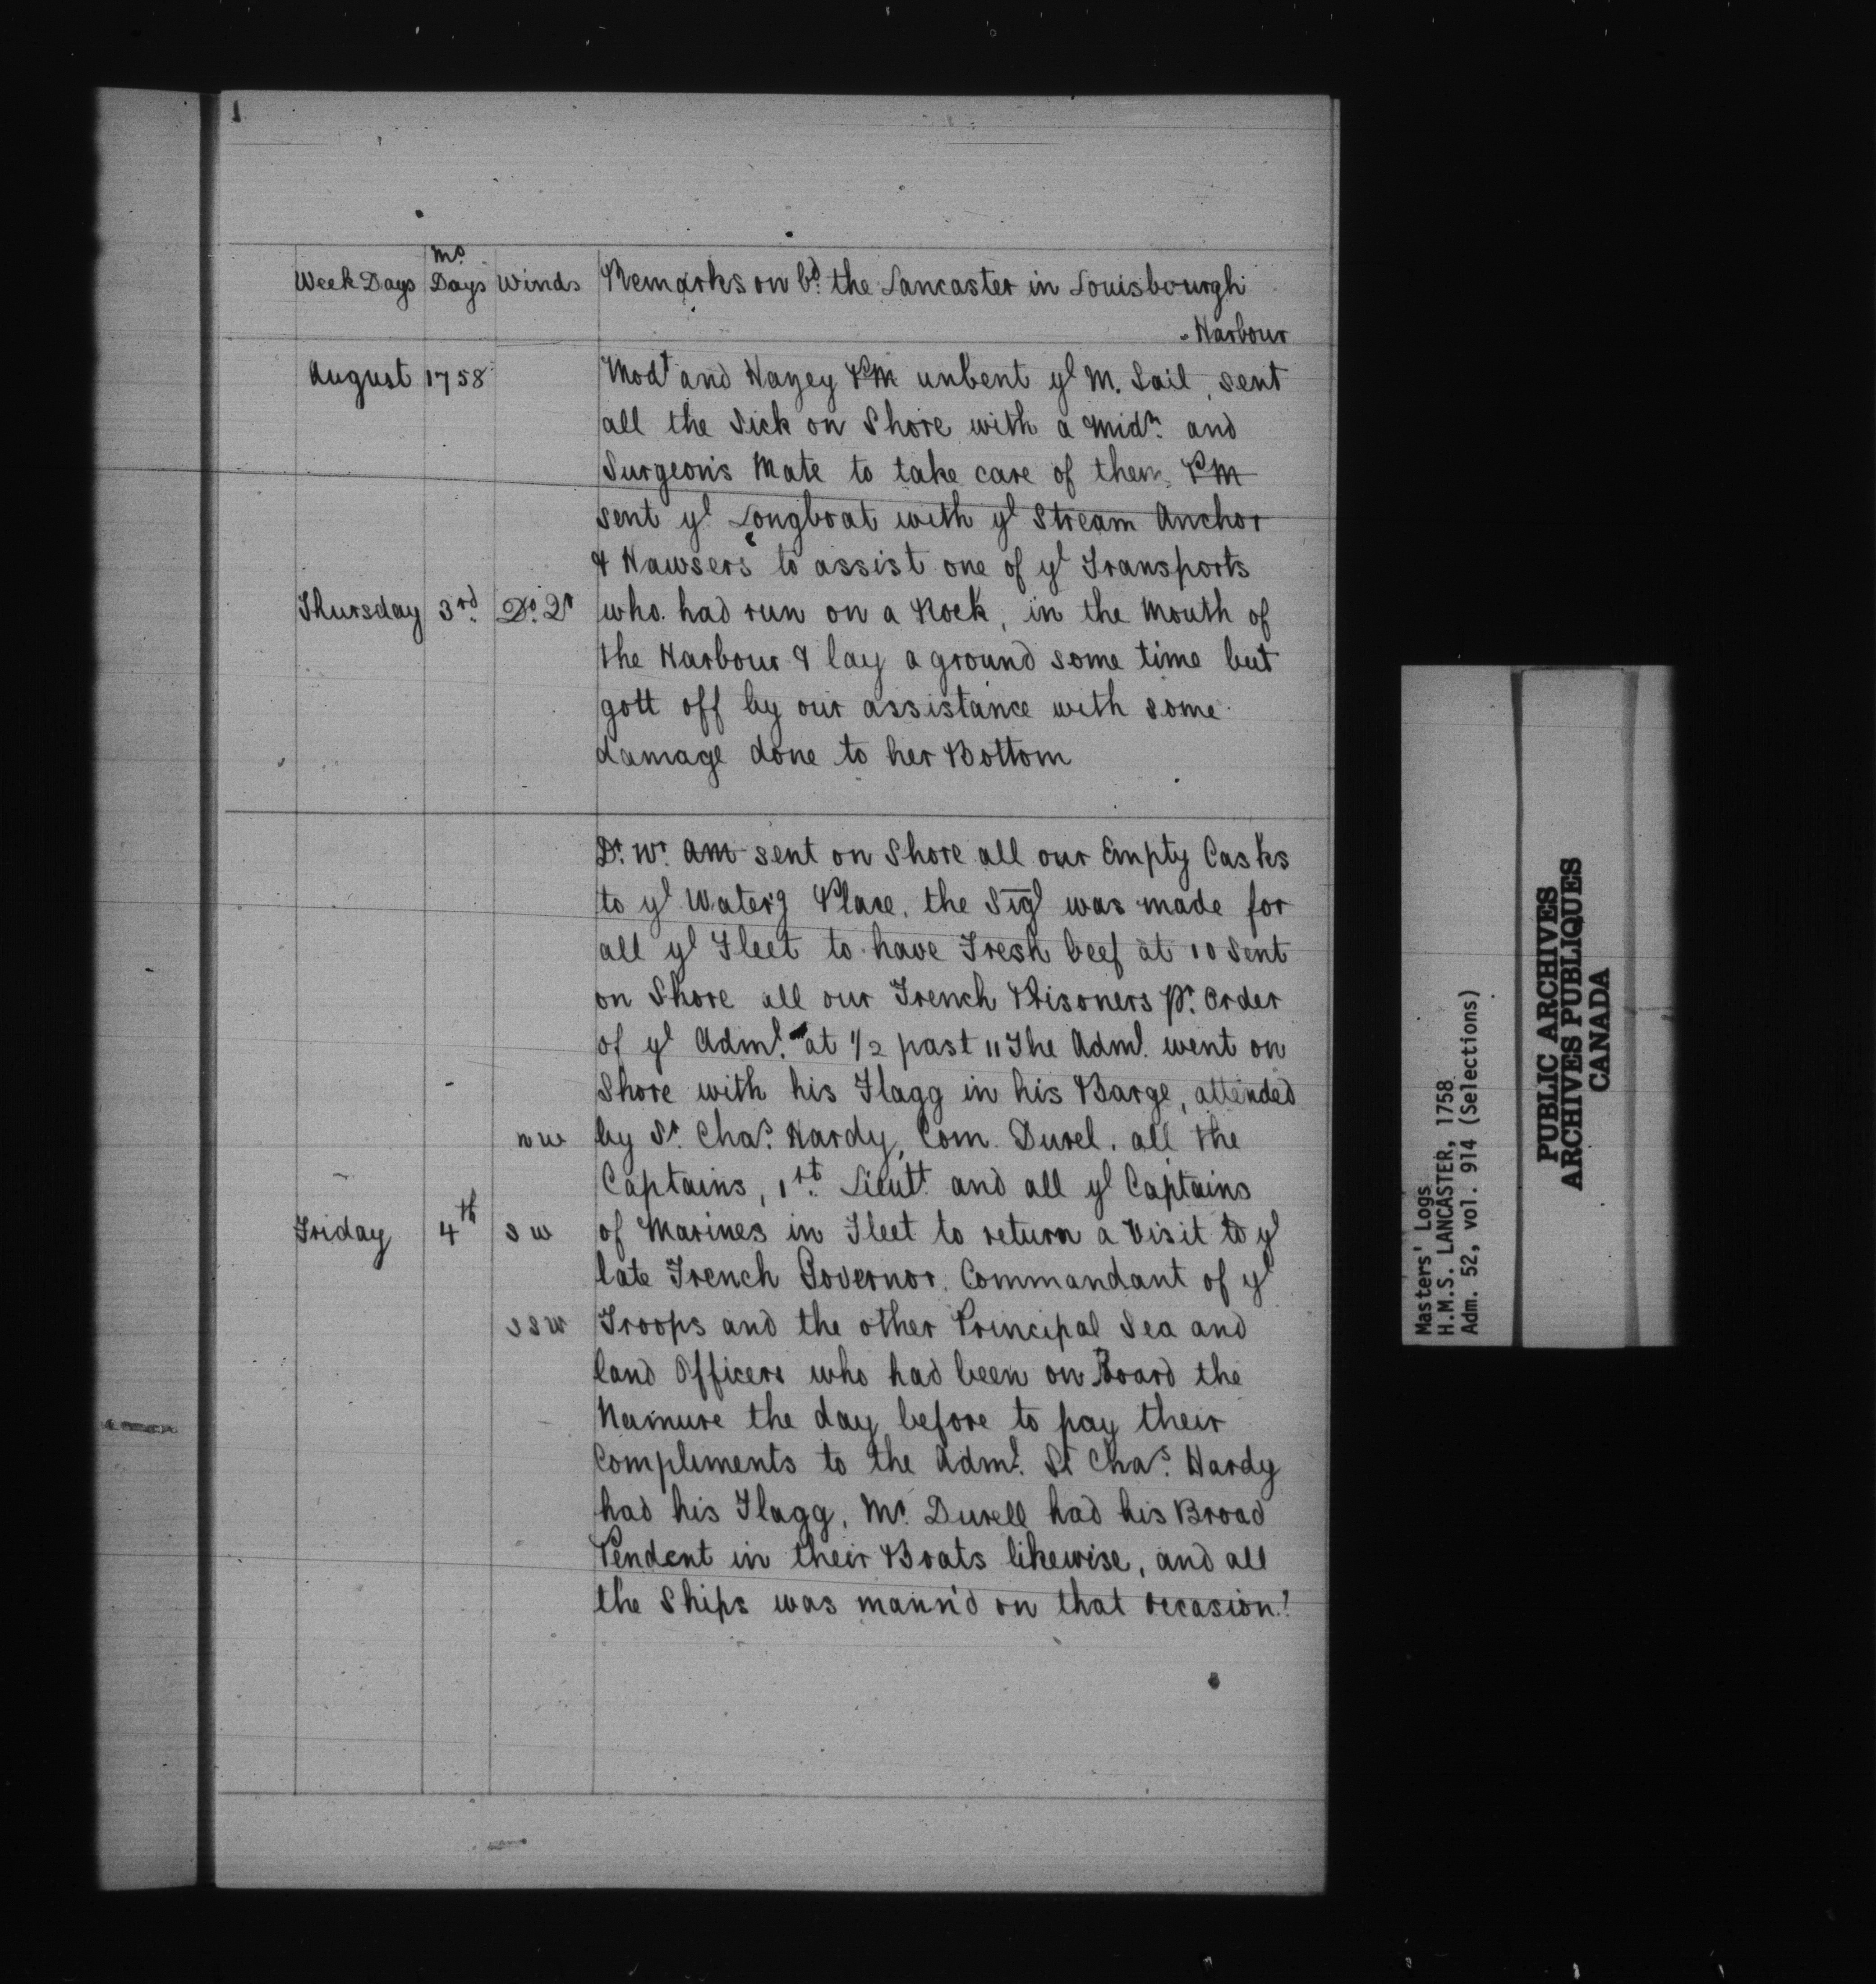 1
Week Days Mo. Days Winds Remarks on bd. the Lancaster in Louisbourgh
Harbour
August 1758 Modt and Hazey PM unbent ye M. Sail, sent
all the Sick on Shore with a Midn. and
Surgeon's Mate to take care of them, PM
sent ye Longboat with ye Stream Anchor
& Hawsers to assist one of ye Transports
Thursday 3rd. Do. Wr who had run on a Rock, in the Mouth of
the Harbour & lay a ground some time but
gott off by our assistance with some
damage done to her Bottom
Dr. Wr. AM sent on Shore all our Empty Casks
to ye Water'g Place, the Sigl was made for
all ye Fleet to have Fresh beef at 10 Sent
on Shore all our French Prisoners pr. Order
of ye Adml. at 1/2 past 11 The Adml. went on
Shore with his Flagg in his Barge, attended
NW by Sr. Chas. Hardy, Com. Durel, all the
Captains, 1st. Lieutt. and all ye Captains
Friday 4th SW of Marines in Fleet to return a Visit to ye
late French Governor, Commandant of ye
SSW Troops and the other Principal Sea and
land Officers who had been on Board the
Namure the day before to pay their
Compliments to the Adml. Sr Chas. Hardy
had his Flagg, Mr. Durell had his Broad
Pendent in their Boats likewise, and all
the Ships was mann'd on that Occasion.
Masters' Logs
H.M.S. LANCASTER, 1758
Adm. 52, vol. 914 (Selections)
PUBLIC ARCHIVES
ARCHIVES PUBLIQUES
CANADA